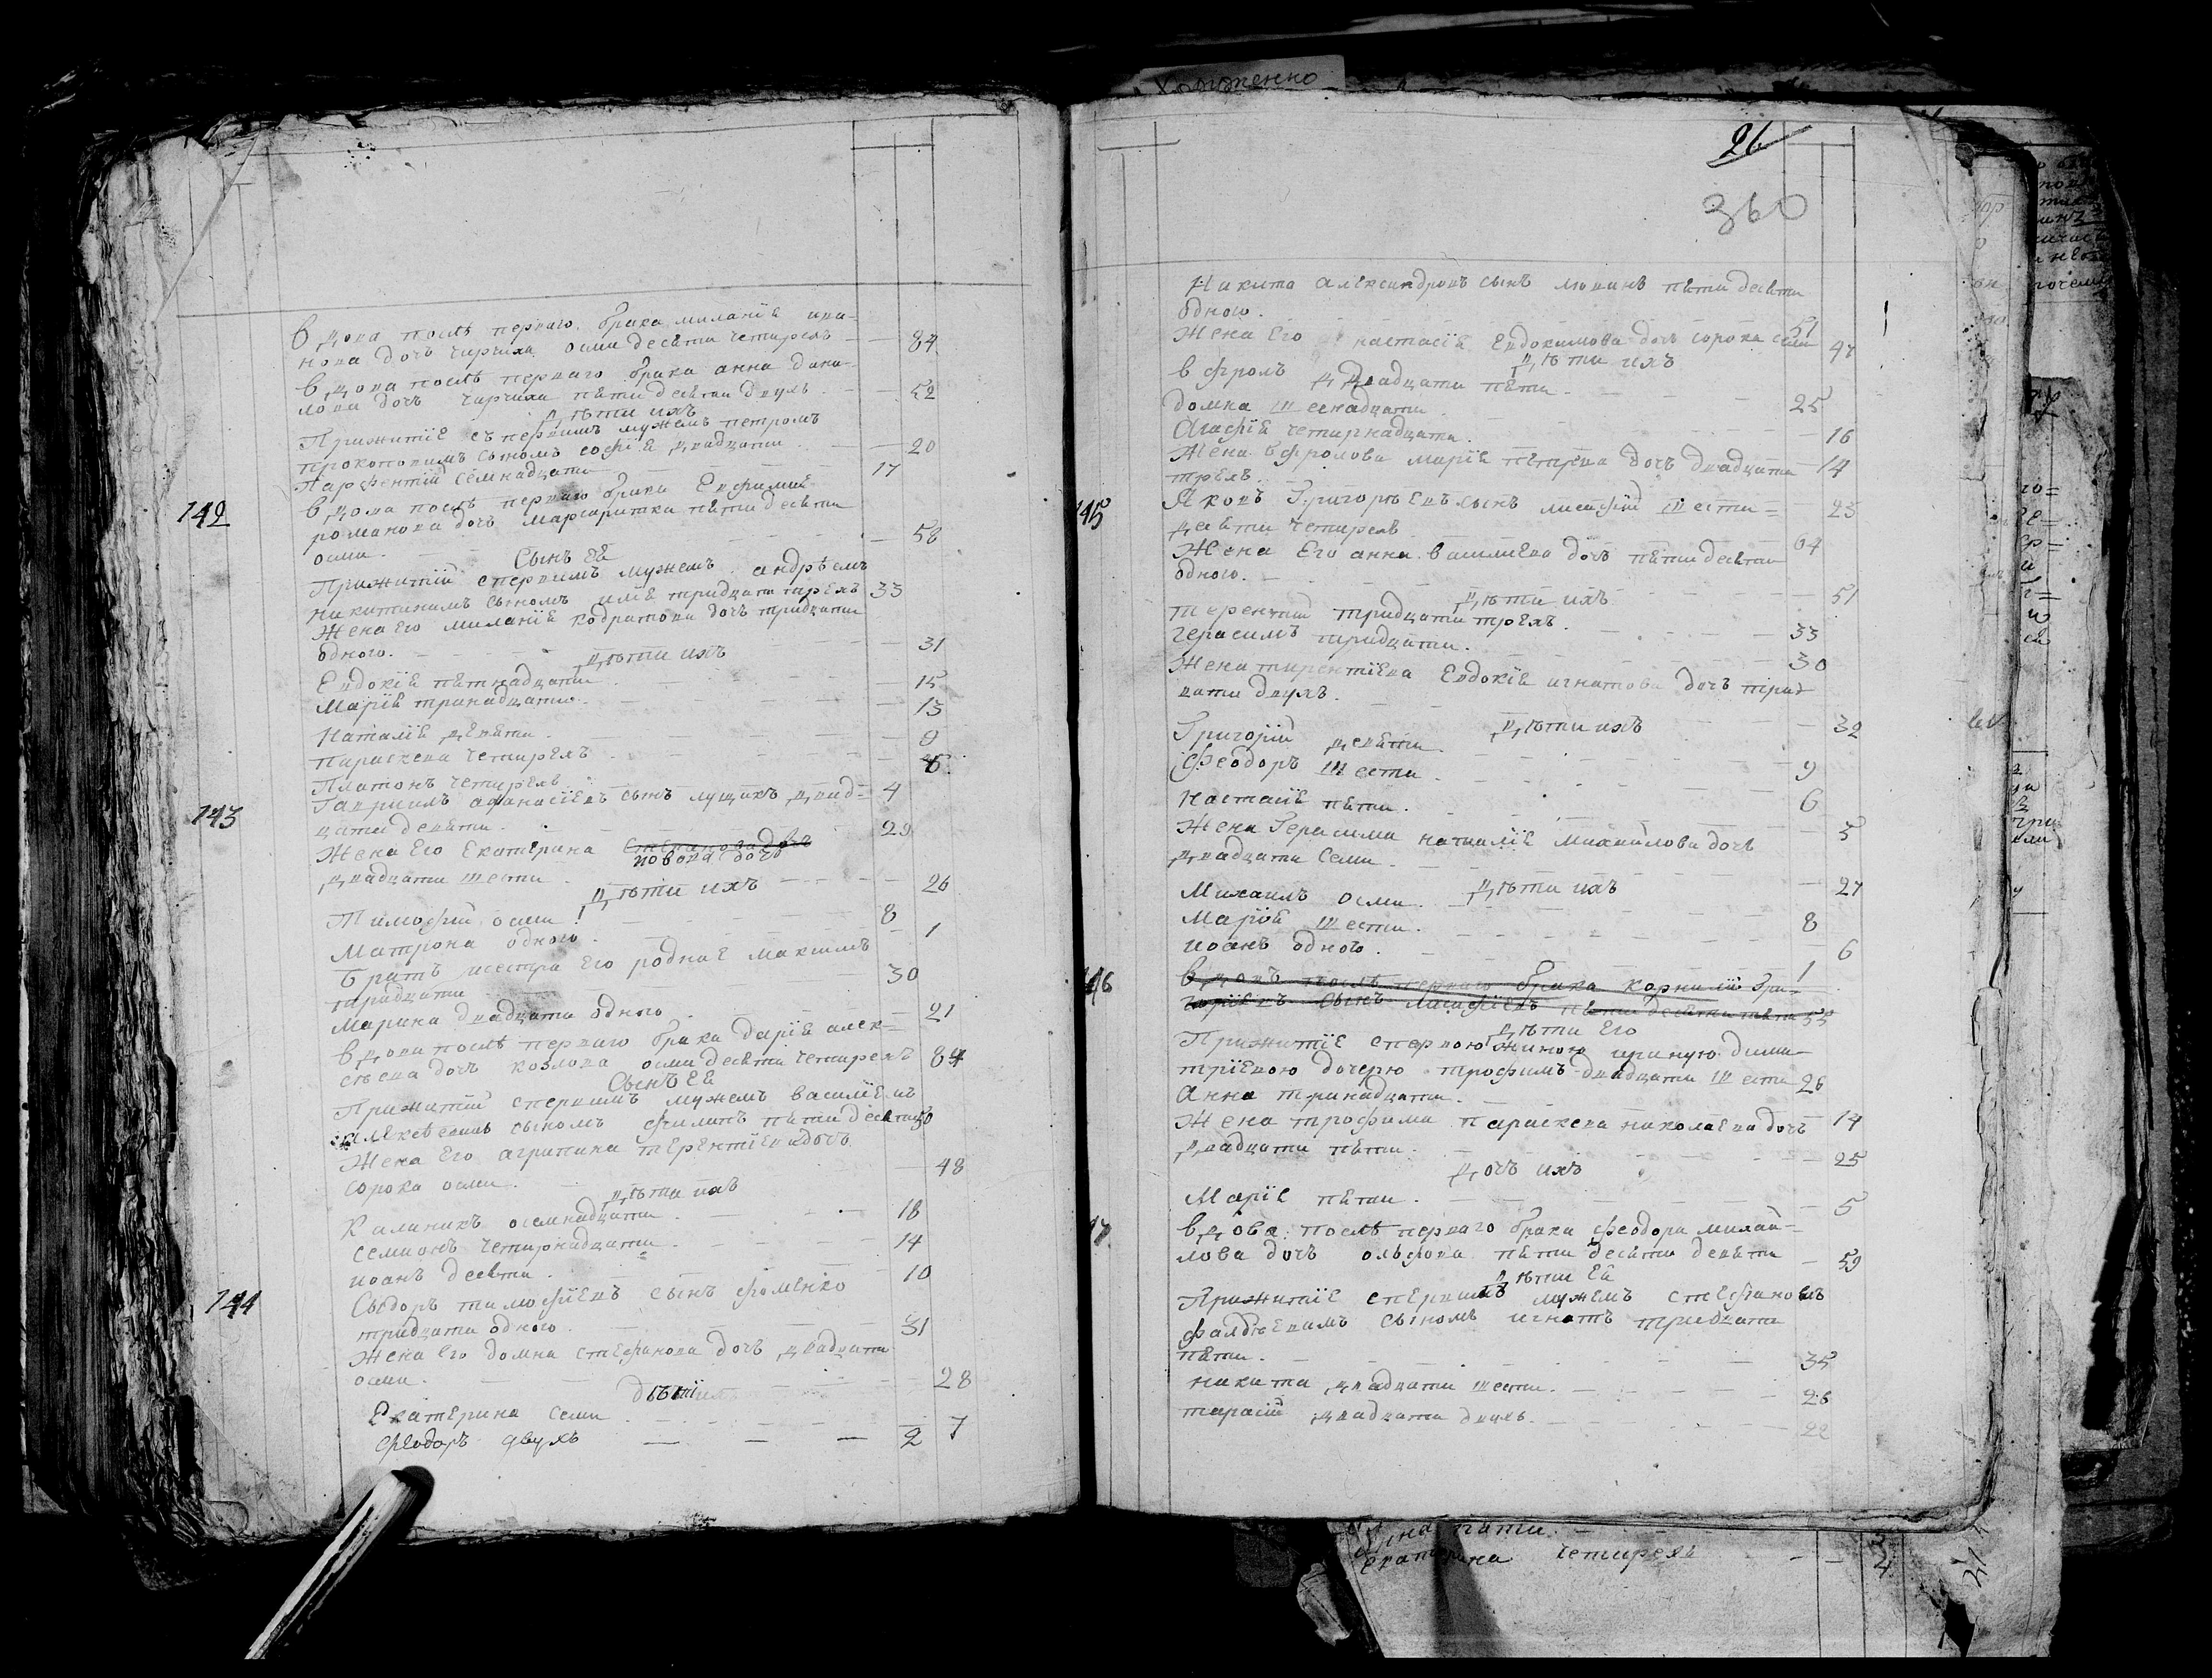 вдова послѣ перваго брака миланіѣ ива-
нова дочь чирчиха осми десѣти четирехъ — 84
вдова послѣ перваго брака анна дани-
лова дочь чирчиха пѣти десѣти двухъ — 52
дѣти ихъ
Прижитіе съ первимъ мужемъ петромъ
прокоповимъ сыномъ софіѣ двадцати — 20
Парфентій семнадцати — 17
142 вдова послѣ перваго брака Евфиміѣ
романова дочь маргаритка пѣти десѣти
осми — 58
Сынъ Еѣ
Прижитій спервимъ мужемъ андрѣемъ
никитинимъ сыномъ иліѣ тридцати трехъ 33
Жена его миланіѣ кодратова дочь тридцати
одного — 31
дѣти ихъ
Евдокіѣ пѣтнадцати — 15
Маріѣ тринадцати — 13
Наталіѣ девѣти — 9
параскева четирехъ — 
Платонъ четирехъ — 4
143 Гавриилъ афанасіевъ сынъ лущикъ двад-
цати девѣти — 29
Жена Его Екатерина Степанова дочь
иовова дочь
двадцати шести — 26
дѣти ихъ
Тимофій осми — 8
Матрона одного — 1
Братъ исестра Его родніе максимъ
тридцати — 30
Марина двадцати одного — 21
вдова послѣ перваго брака даріѣ алек-
сѣева дочь козлова осми десѣти четирехъ 84
Сынъ Еѣ
Прижитій спервимъ мужемъ василіемъ
алексѣевимъ сыномъ филипъ пѣти десѣти 50
Жена Его агрипина терентіева дочь
сорока осми — 48
дѣти ихъ
Калиникъ осемнадцати — 18
семионъ четирнадцати — 14
иоанъ десѣти — 10
144 Сидоръ тимофіевъ сынъ фоменко
тридцати одного — 31
Жена его домна стефанова дочь двадцати
осми — 28
дѣти ихъ
Екатерина семи — 7
Феодоръ двухъ — 2
Хорженко
26
360
Никита александровъ сынъ пѣти десѣти
одного — 51
Жена Его настасіѣ Евдокимова дочь сорока семи 47
дѣти ихъ
вфролъ двадцати пѣти — 25
домна шеснадцати — 16
Агафіѣ четирнадцати — 14
Жена вфролова маріѣ петрова дочь двадцати
трехъ — 23
145 Яковъ Григорьевъ сынъ шести-
десѣти четирехъ — 64
Жена Его анна василіева дочь пѣти десѣти
одного — 51
дѣти ихъ
терентій тридцати трехъ — 33
герасимъ тридцати — 30
Жена тирентіева Евдокіѣ игнатова дочь трид-
цати двухъ — 32
дѣти ихъ
Григорій девѣти — 9
Феодоръ шести — 6
Настасіѣ пѣти — 5
Жена Герасима наталіѣ михайлова дочь
двадцати семи — 27
дѣти ихъ
Михаилъ осми — 8
Маріѣ шести — 6
иоанъ одного — 1
146 вдовъ послѣ перваго брака корнилій Гри-
горіевъ сынъ пѣти десѣти пѣти 55
дѣти Его
Прижитіе спервою жиною ириную дими-
тріевою дочерю трофимъ двадцати шести 26
Анна тринадцати — 14
Жена трофима параскева николаева дочь
двадцати пѣти — 25
дочь ихъ
Маріѣ пѣти — 5
вдова послѣ перваго брака феодора михай-
лова дочь пѣти десѣти девѣти — 59
дѣти Еѣ
Прижитіе спервимъ мужемъ стефановъ
фалдѣевимъ сыномъ игнатъ тридцати
пѣти — 35
никита двадцати шести — 26
тарасій двадцати двухъ — 22
пѣти
Екатерина четирехъ — 4